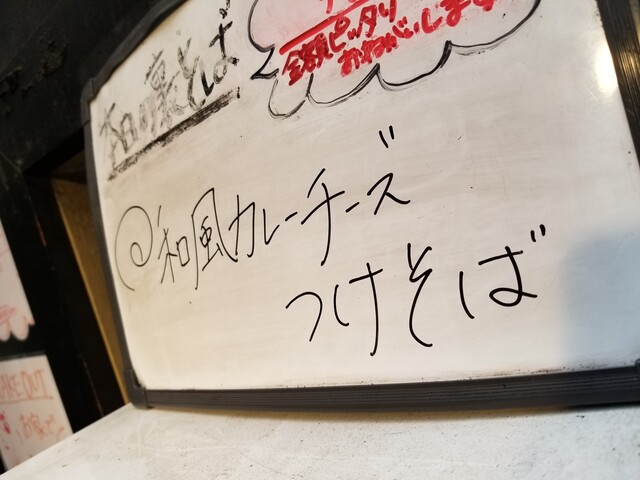 本日の裏そば
金額ピッタリ
おねがいします
@和風カレーチーズ
つけそば
AKE OUT